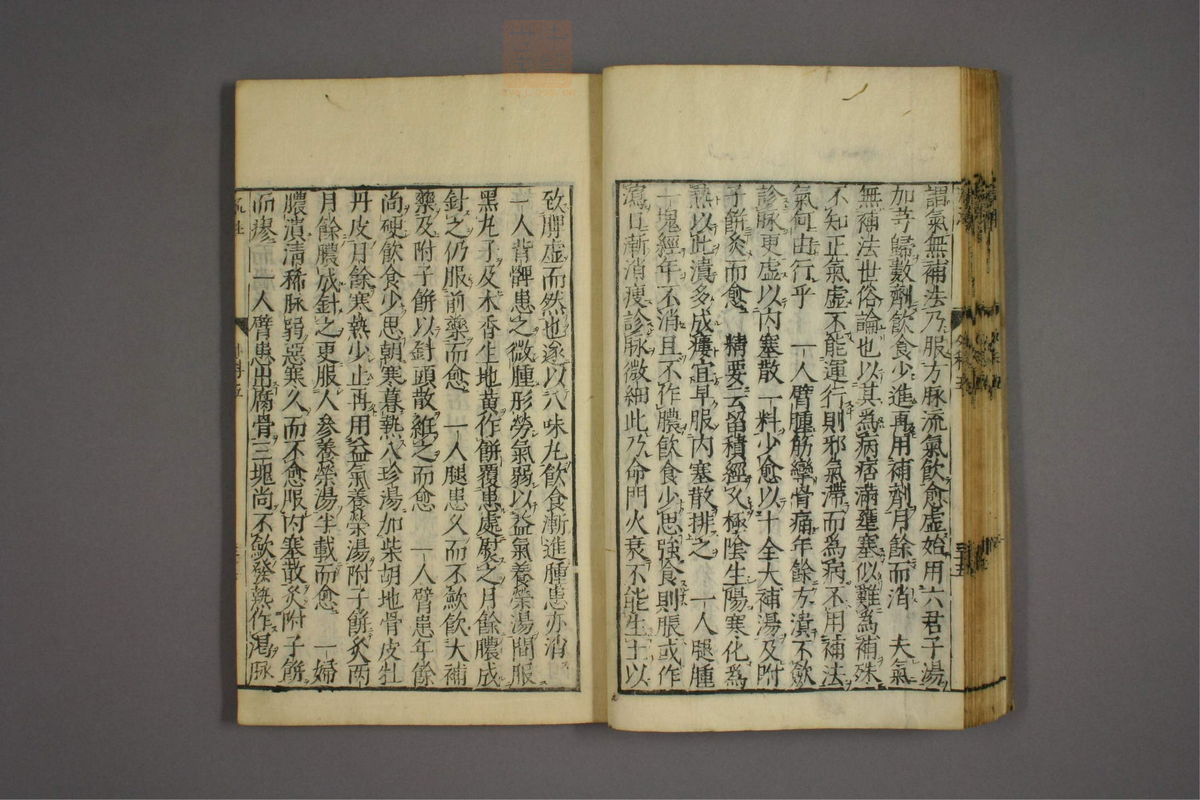 謂氣無補法乃服方脉流氣飲愈虚始用六君子湯
加芎歸數劑飲食少進再用補劑月餘而消　夫氣
無補法世俗論也以其為病痞滿壅塞似難為補殊
不知正氣虚不能運行則邪氣滯而為病不用補法
氣何由行乎　一人臂腫筋攣骨痛年餘方潰不斂
診脉更虚以内塞散一料少愈以十全大補湯及附
子餅灸而愈　精要云留積經久極陰生陽寒化為
熱以此潰多成瘻宜早服内塞散排之　一人腿腫
一塊經年不消且不作膿飲食少思強食則脹或作
瀉日漸消瘦診脉微細此乃命門火衰不能生土以
致脾虚而然也遂以八味丸飲食漸進腫患亦消
一人背髀患之微腫形勞氣弱以益氣養榮湯間服
黑丸子及木香生地黄作餅覆患處熨之月餘膿成
針之仍服前藥而愈　一人腿患久而不斂飲大補
藥及附子餅以針頭散紝之而愈　一人臂患年餘
尚硬飲食少思朝寒暮熱八珍湯加柴胡地骨皮牡
丹皮月餘寒熱少止再用益氣養榮湯附子餅灸兩
月餘膿成針之更服人參養榮湯半載而愈　一婦
膿潰清稀脉弱惡寒久而不愈服内塞散灸附子餅
而瘳　一人臂患出腐骨三塊尚不斂發熱作渇脉